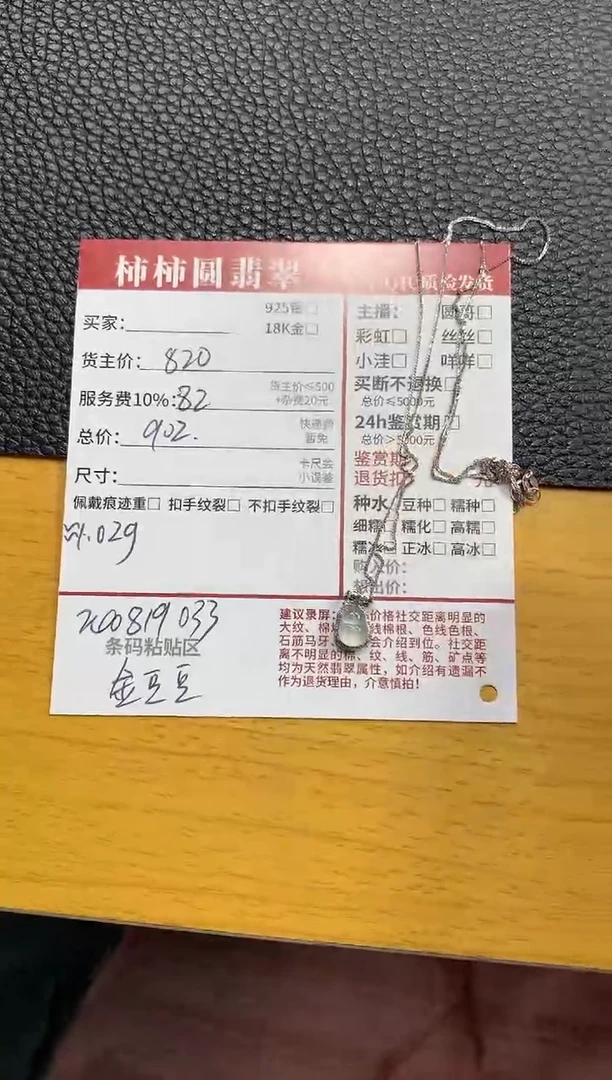 柿柿圓翡翠
质检发货
925银□
18K金□
买家:
货主价: 820
货主价≤500
+杂费20元
服务费10%:82
总价: 902.
快递费
暂免
尺寸:
卡尺会
小误差
佩戴痕迹重□ 扣手纹裂□ 不扣手纹裂□
.029
主播:
彩虹□ 丝丝□
小洼□ 咩咩□
买断不退换□
总价≤5000元
24h鉴赏期□
总价>5000元
鉴赏期
退货扣 元
种水 豆种□ 糯种□
细糯□ 糯化□ 高糯□
糯冰□ 正冰□ 高冰□
购入价:
想出价:
200819033
条码粘贴区
金豆豆
建议录屏: 价格社交距离明显的
大纹、棉 线棉根、色线色根、
石筋马牙 会介绍到位。社交距
离不明显的棉、纹、线、筋、矿点等
均为天然翡翠属性，如介绍有遗漏不
作为退货理由，介意慎拍!